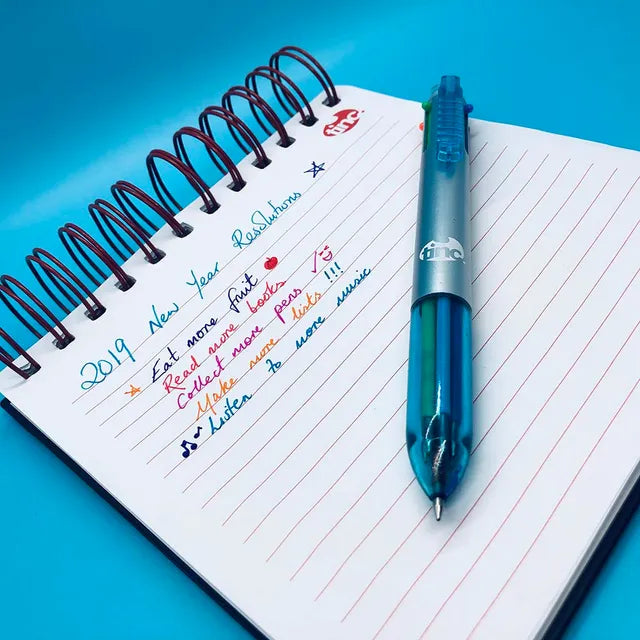 tinc
2019 New Year Resolutions
Eat more fruit
Read more books
Collect more pens
Make more lists !!!
Listen to more music
tinc